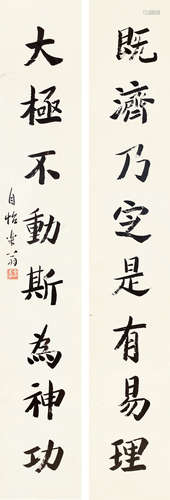 既濟乃定是有易理
大極不動斯為神功
自怡翁